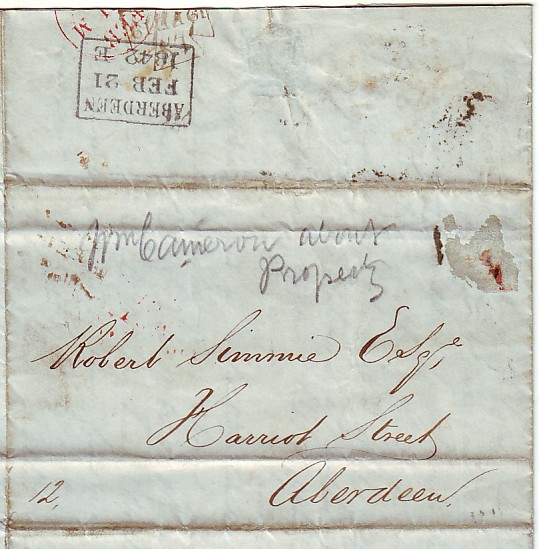 ABERDEEN
FEB 21
1842 E
Wm Cameron about
Property
Robert Simmie Esqre
Harriot Street
Aberdeen.
12,